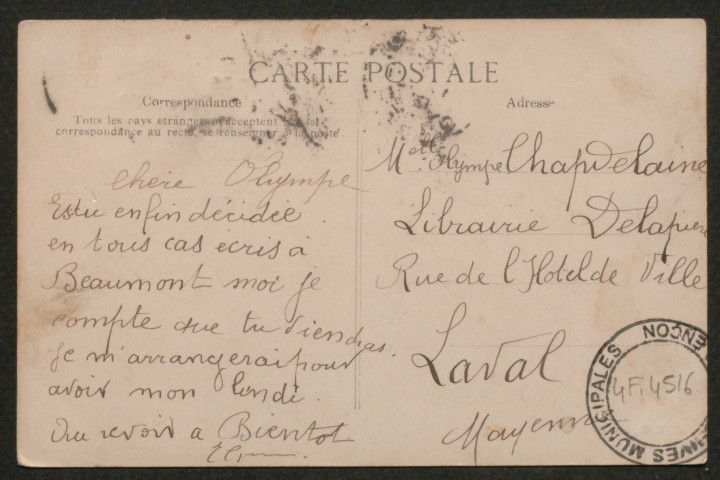 CARTE POSTALE
Correspondance
Tous les pays étrangers n'acceptent pas la
correspondance au recto, se renseigner à la poste
Chère Olympe
Estu enfin décidée
en tous cas ecris à
Beaumont moi je
compte que tu viendras.
Je m'arrangerai pour
avoir mon lundi.
Au revoir a Bientot
Adresse
Melle Olympe Chapdelaine
Librairie
Rue de l'Hotel de Ville
Laval
Mayenne
MUNICIPALES
4F.4516